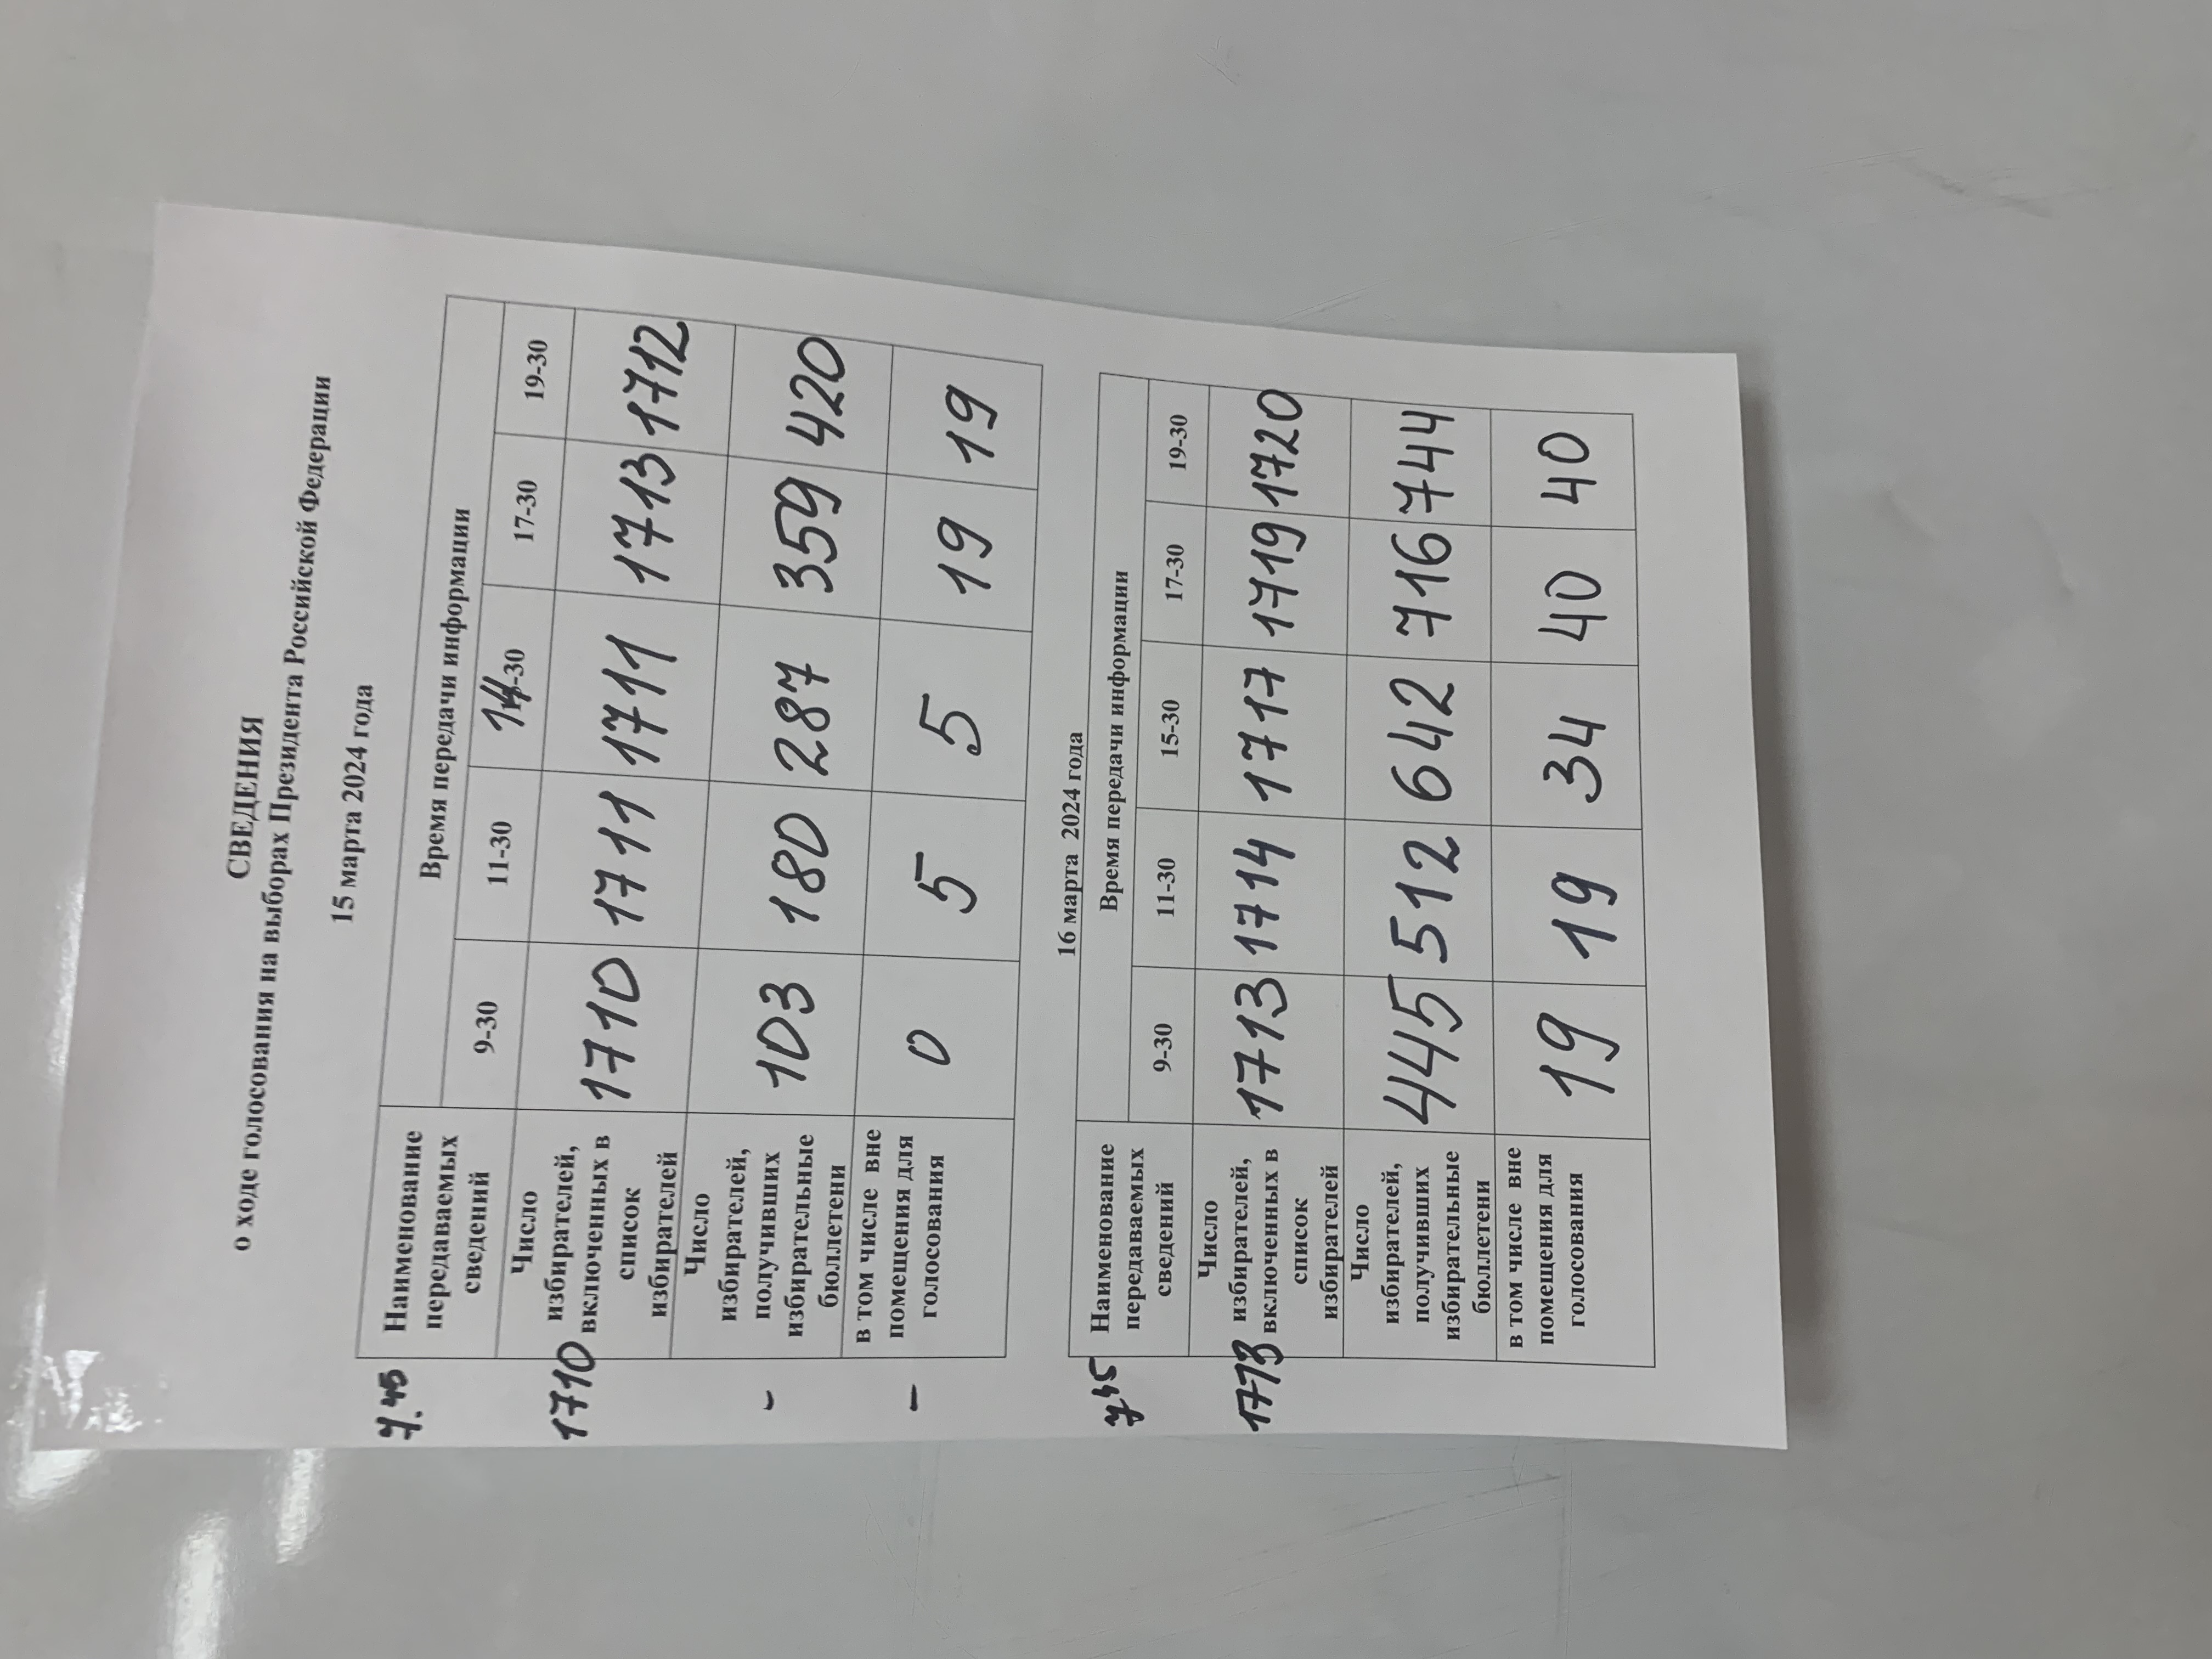 СВЕДЕНИЯ
о ходе голосования на выборах Президента Российской Федерации
15 марта 2024 года
7.45
Наименование передаваемых сведений
Время передачи информации
9-30 11-30 14-30 17-30 19-30
1710
Число избирателей, включенных в список избирателей
1710 1711 1711 1713 1712
-
Число избирателей, получивших избирательные бюллетени
103 180 287 359 420
-
в том числе вне помещения для голосования
0 5 5 19 19
16 марта 2024 года
7.45
Наименование передаваемых сведений
Время передачи информации
9-30 11-30 15-30 17-30 19-30
1713
Число избирателей, включенных в список избирателей
1713 1714 1717 1719 1720
Число избирателей, получивших избирательные бюллетени
445 512 642 716 744
в том числе вне помещения для голосования
19 19 34 40 40